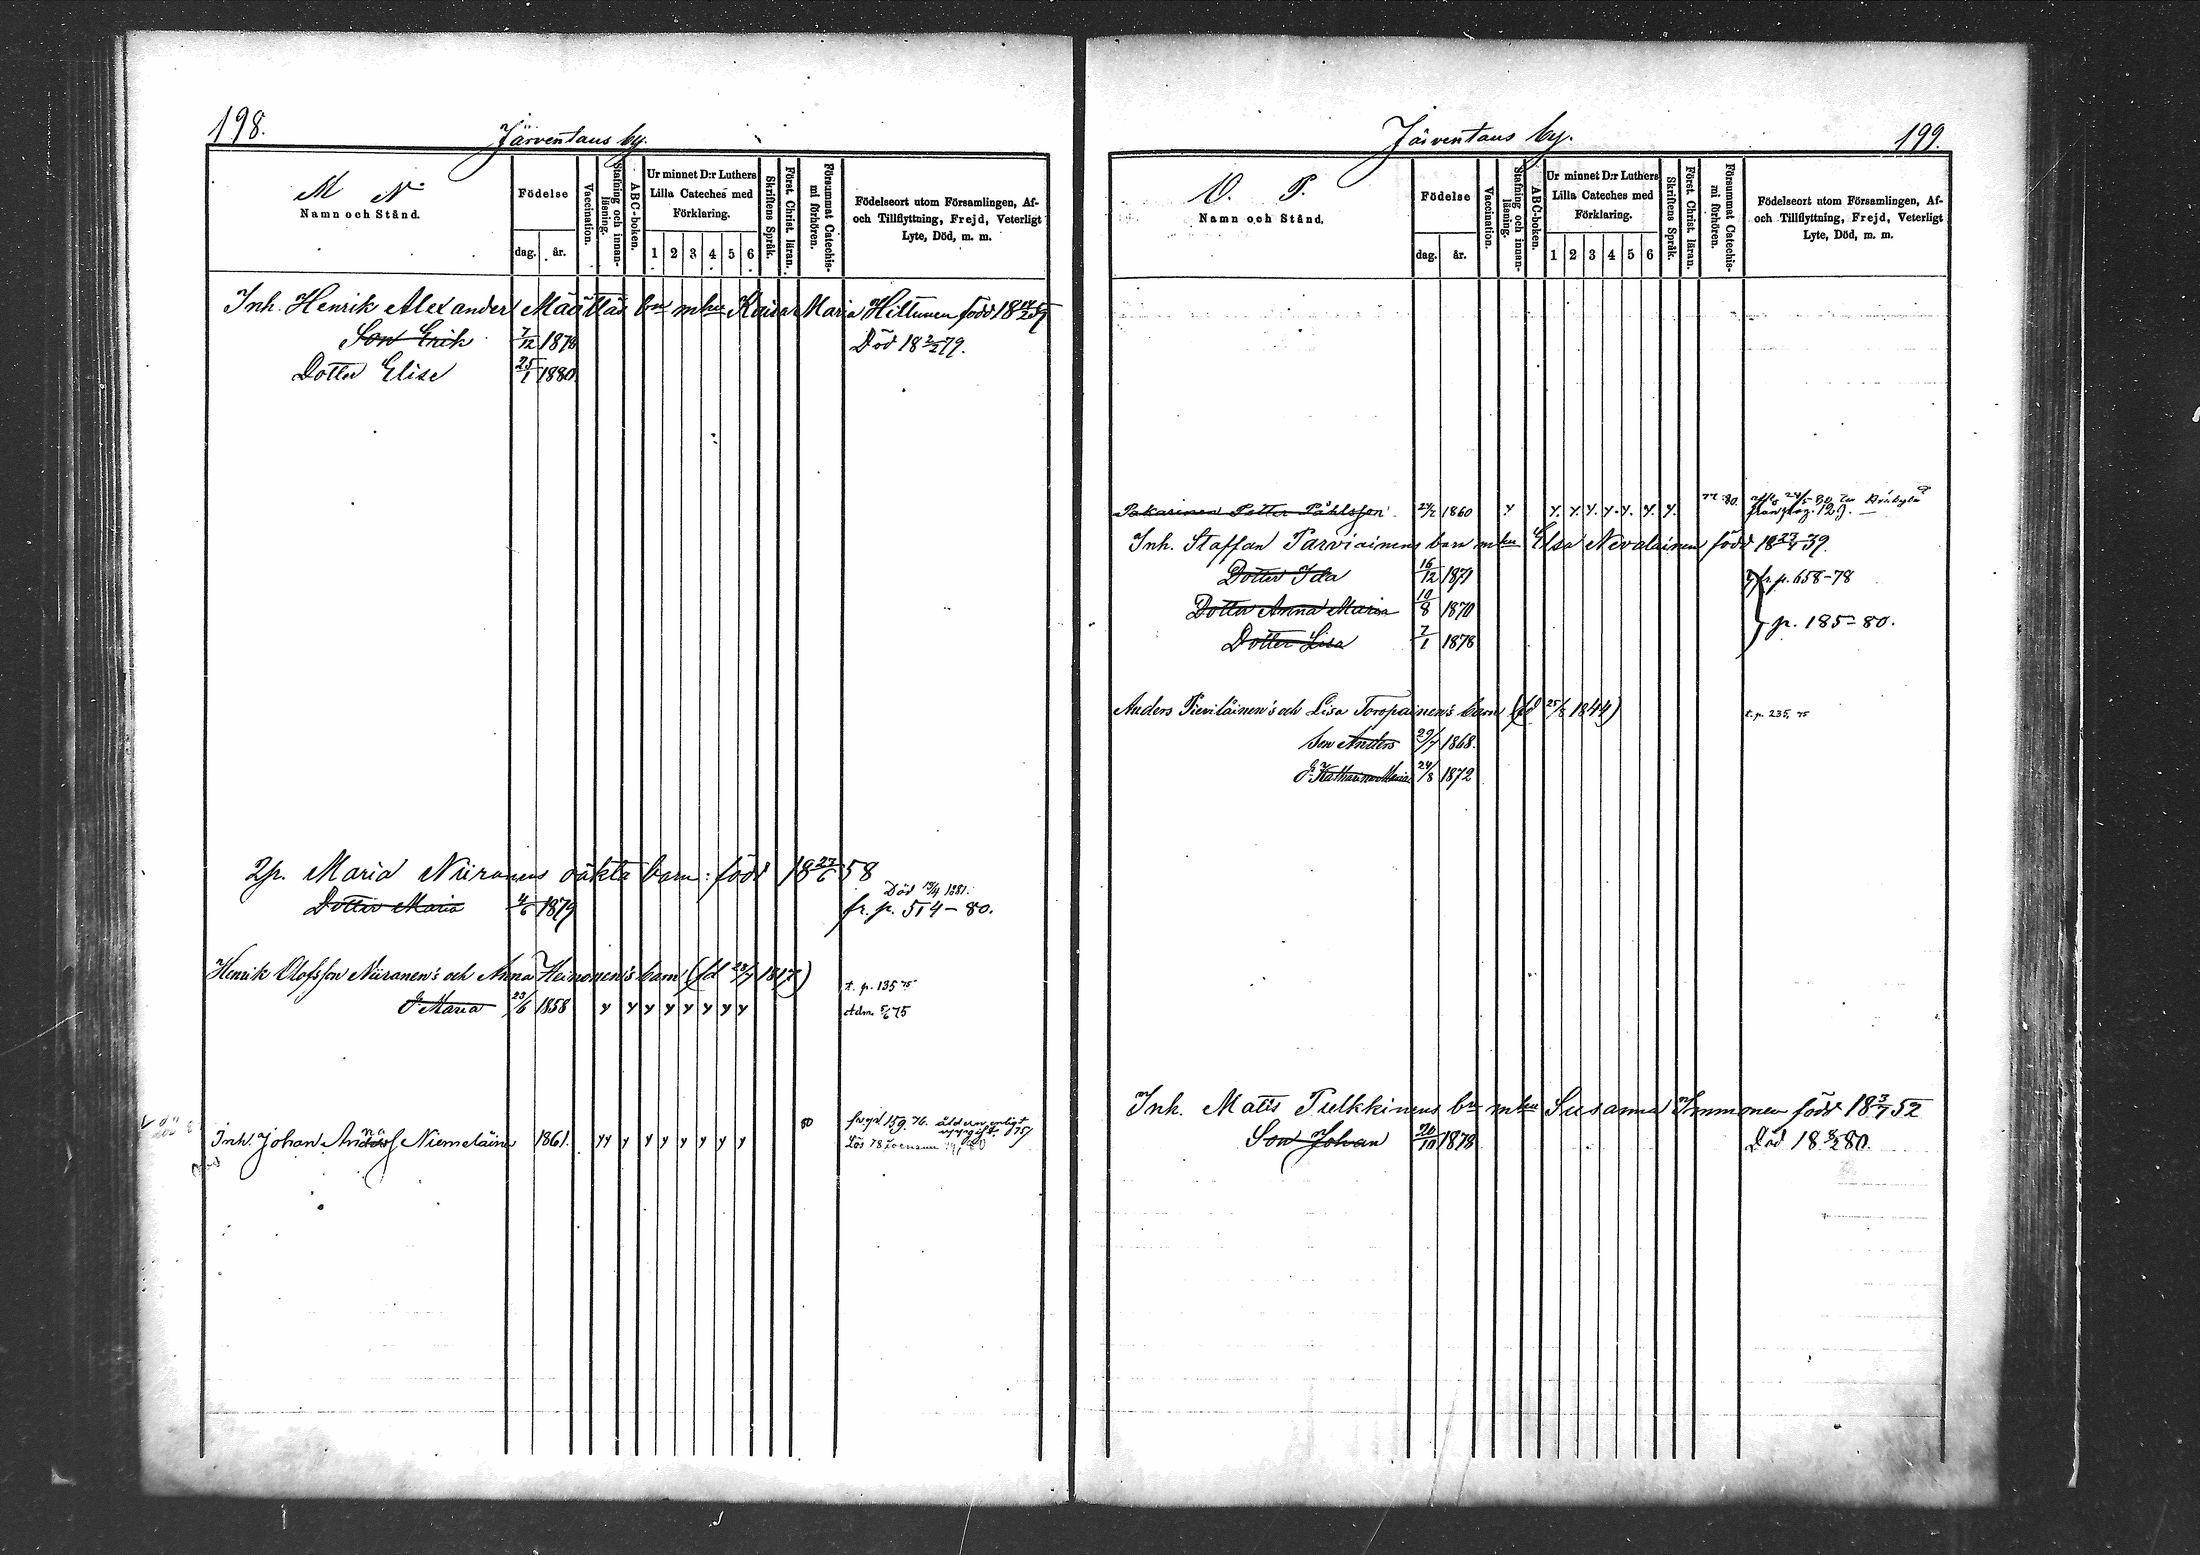 198.
Järventaus by.
M N
Namn och Stånd.
Födelse
dag. år.
Vaccination.
Stafning och innan-
läsning.
ABC-boken.
Ur minnet D:r Luthers
Lilla Cateches med
Förklaring.
1 2 3 4 5 6
Skriftens Språk.
Först. Christ. läran.
Försummat Catechis-
mi förhören.
Födelseort utom Församlingen, Af-
och Tillflyttning, Frejd, Veterligt
Lyte, Död, m. m.
Inh. Henrik Alexander Määttäs bn m hu Kaisa Maria Hiltunen född
Son Erik 7/12 1878 Död 18 2/2 79.
Dotter Elise 25/1 1880
Maria Niiranens oäkta barn: född 18 23/6 58
Död 1881.
Dotter Maria 1879 fr. p. 514-80.
Henrik Olofsson Niiranen's och Anna Heinonen's barn
t. p. 135 75
d. Maria 23/6 1858 y y y y y y y y Adm. 75
80 159. 76.
Inh. Johan Niemeläin 1861. yy y y y y y y y Läs 78 Joensuu
Järventaus by.
199.
O. P.
Namn och Stånd.
Födelse
dag. år.
Vaccination.
Stafning och innan-
läsning.
ABC-boken.
Ur minnet D:r Luthers
Lilla Cateches med
Förklaring.
1 2 3 4 5 6
Skriftens Språk.
Först. Christ. läran.
Försummat Catechis-
mi förhören.
Födelseort utom Församlingen, Af-
och Tillflyttning, Frejd, Veterligt
Lyte, Död, m. m.
Pakarinen Petter Påhlsson 1860 y y. y. y. y. y. y. y. 77. 80.
Inh. Staffan Parviainens barn m hu Elsa Nevalainen född 39.
Dotter Ida 16/12 1871 fr. p. 658-78
Dotter Anna Maria 10/8 1870
p. 185-80.
Dotter Lisa 7/1 1878
Anders Pieviläinen's och Lisa Toropainen's barn (fd 25/8 1844) t. p. 235, 75
Son Anders 29/7 1868.
d. Katharina Maria 24/8 1872
Inh. Matts Pulkkinens bn m hu Susanna Immonen född 18 3/7 52
Son Johan 20/10 1878 Död 80.